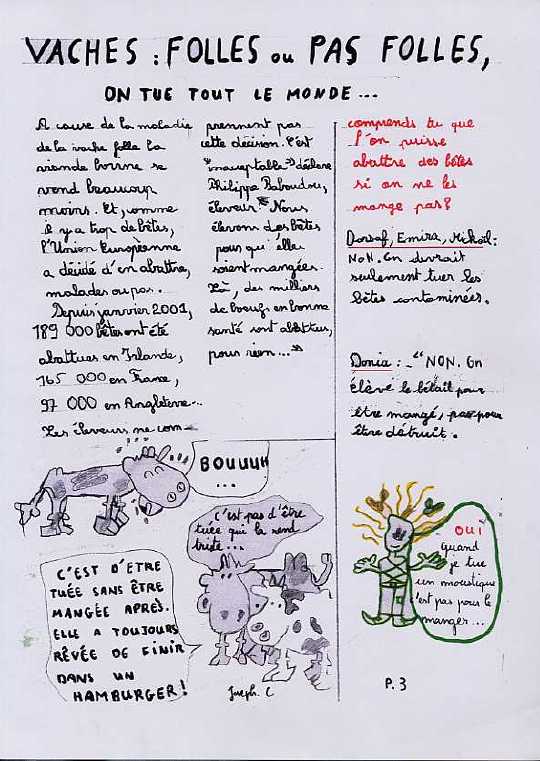 VACHES : FOLLES ou PAS FOLLES,
ON TUE TOUT LE MONDE ...
A cause de la maladie
de la vache folle la
viande bovine se
vend beaucoup
moins. Et, comme
il y a trop de bêtes,
l'Union Européenne
a décidé d'en abattre,
malades ou pas.
Depuis janvier 2001,
189 000 bêtes ont été
abattues en Irlande,
165 000 en France,
97 000 en Angleterre...
Les éleveurs ne com-
prennent pas
cette décision. C'est
"inacceptable" déclare
Philippe Baboudou,
éleveur. "Nous
élevons des bêtes
pour qu'elles
soient mangées.
Là, des milliers
de boeufs en bonne
santé sont abattus,
pour rien..."
comprends tu que
l'on puisse
abattre des bêtes
si on ne les
mange pas?
Dorsaf, Emira, Mickaïl:
NON. On devrait
seulement tuer les
bêtes contaminées.
Donia : "NON. On
élève le bétail pour
être mangé, pas pour
être détruit.
BOUUUH
...
C'est pas d'être
tuée qui la rend
triste...
C'EST D'ETRE
TUÉE SANS ÊTRE
MANGÉE APRÈS.
ELLE A TOUJOURS
RÊVÉE DE FINIR
DANS UN
HAMBURGER!
Joseph. C
OUI
quand
je tue
un moustique
c'est pas pour le
manger...
P.3